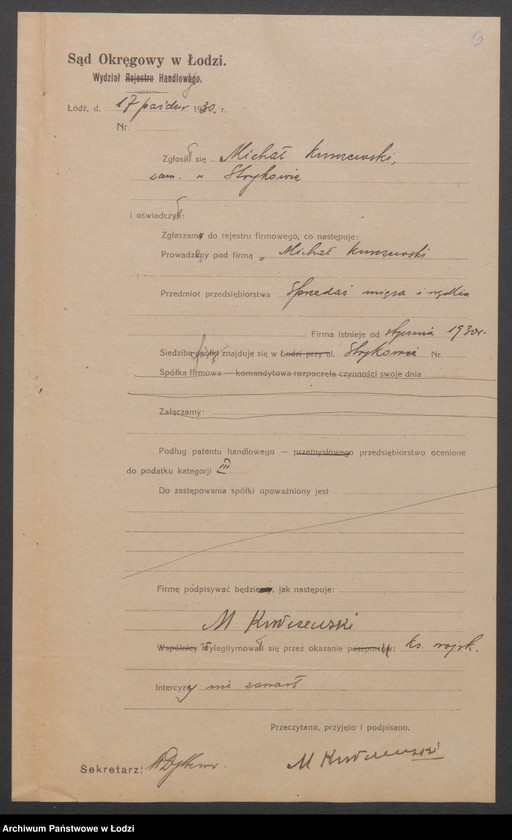 6
Sąd Okręgowy w Łodzi.
Wydział Rejestru Handlowego.
Łódź, d. 17 paźdz 1930. r.
Nr.
Zgłosił się Michał
zam. w Strykowie
i oświadczył:
Zgłaszam do rejestru firmowego, co następuje:
Prowadzę pod firmą „ Michał
Przedmiot przedsiębiorstwa Sprzedaż mięsa i wędlin
Firma istnieje od stycznia 1930 r.
Siedziba firmy znajduje się w Łodzi przy ul. Strykowie Nr
Spółka firmowa — komandytowa rozpoczęła czynności swoje dnia
Załączamy:
Podług patentu handlowego — przemysłowego przedsiębiorstwo ocenione
do podatku kategorji III
Do zastępowania spółki upoważniony jest
Firmę podpisywać będzie jak następuje:
M
Wspólnicy wylegitymował się przez okazanie paszportu: ks. wojsk.
Intercyzy nie zawarł
Przeczytano, przyjęto i podpisano.
Sekretarz:
M
Archiwum Państwowe w Łodzi